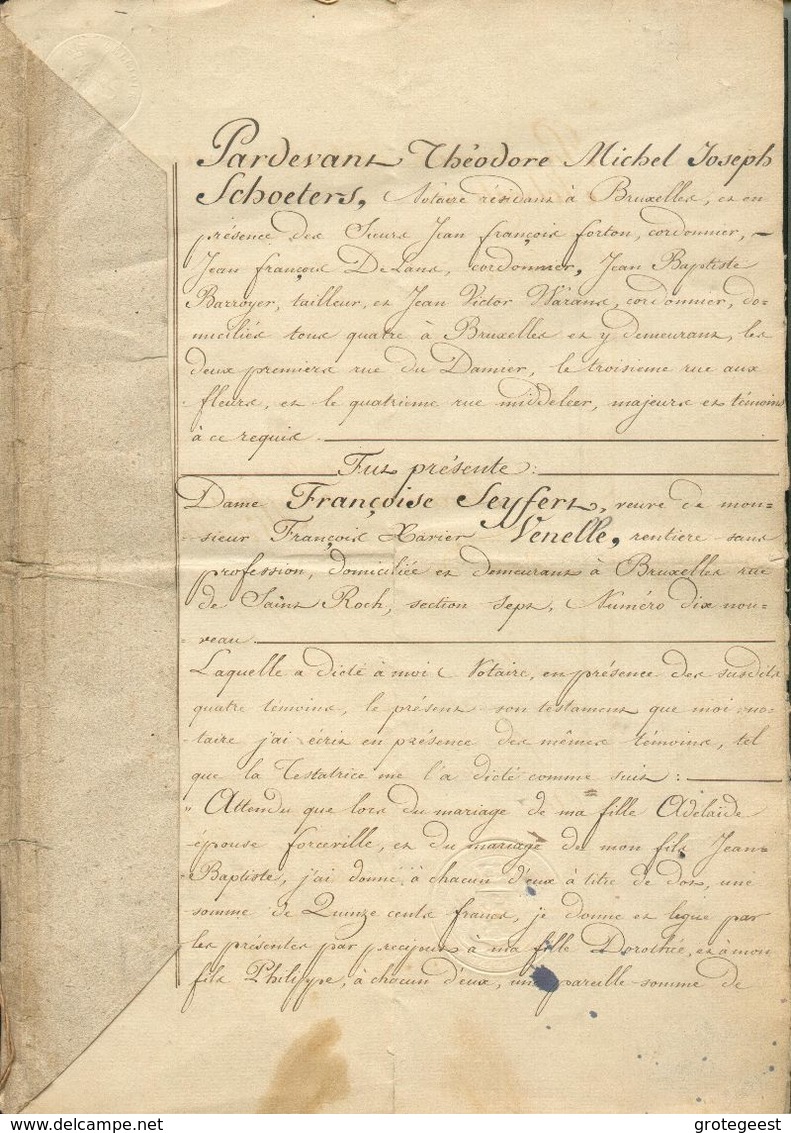 Pardevant Théodore Michel Joseph
Schoeters, Notaire résidant à Bruxelles, et en
présence des Sieurs Jean françois forton, cordonnier, –
Jean françois DeLans, cordonnier, Jean Baptiste
Barroyer, tailleur, et Jean Victor Warans, cordonnier, do=
miciliés tous quatre à Bruxelles et y demeurant, les
deux premiers rue du Damier, le troisieme rue aux
fleurs, et le quatrieme rue middeleer, majeurs et témoins
à ce requis.
Fut présente:
Dame Françoise Seyfert, veuve de mon=
sieur François Xavier Venelle, rentiere sans
profession, domiciliée et demeurant à Bruxelles rue
de Saint Roch, section Sept, Numéro dix nou=
veau.
Laquelle a dicté à moi Notaire, en présence des susdits
quatre témoins, le présent son testament que moi no=
taire j'ai écrit en présence des mêmes témoins, tel
que la Testatrice me l'a dicté comme suit:
" Attendu que lors du mariage de ma fille Adelaïde
épouse forceville, et du mariage de mon fils Jean=
Baptiste, j'ai donné à chacun d'eux à titre de dot, une
somme de Quinze cents francs, je donne et legue par
les présentes par preciput à ma fille Dorothée, et à mon
fils Philippe, à chacun d'eux, une pareille somme de
delcampe.net
grotegeest